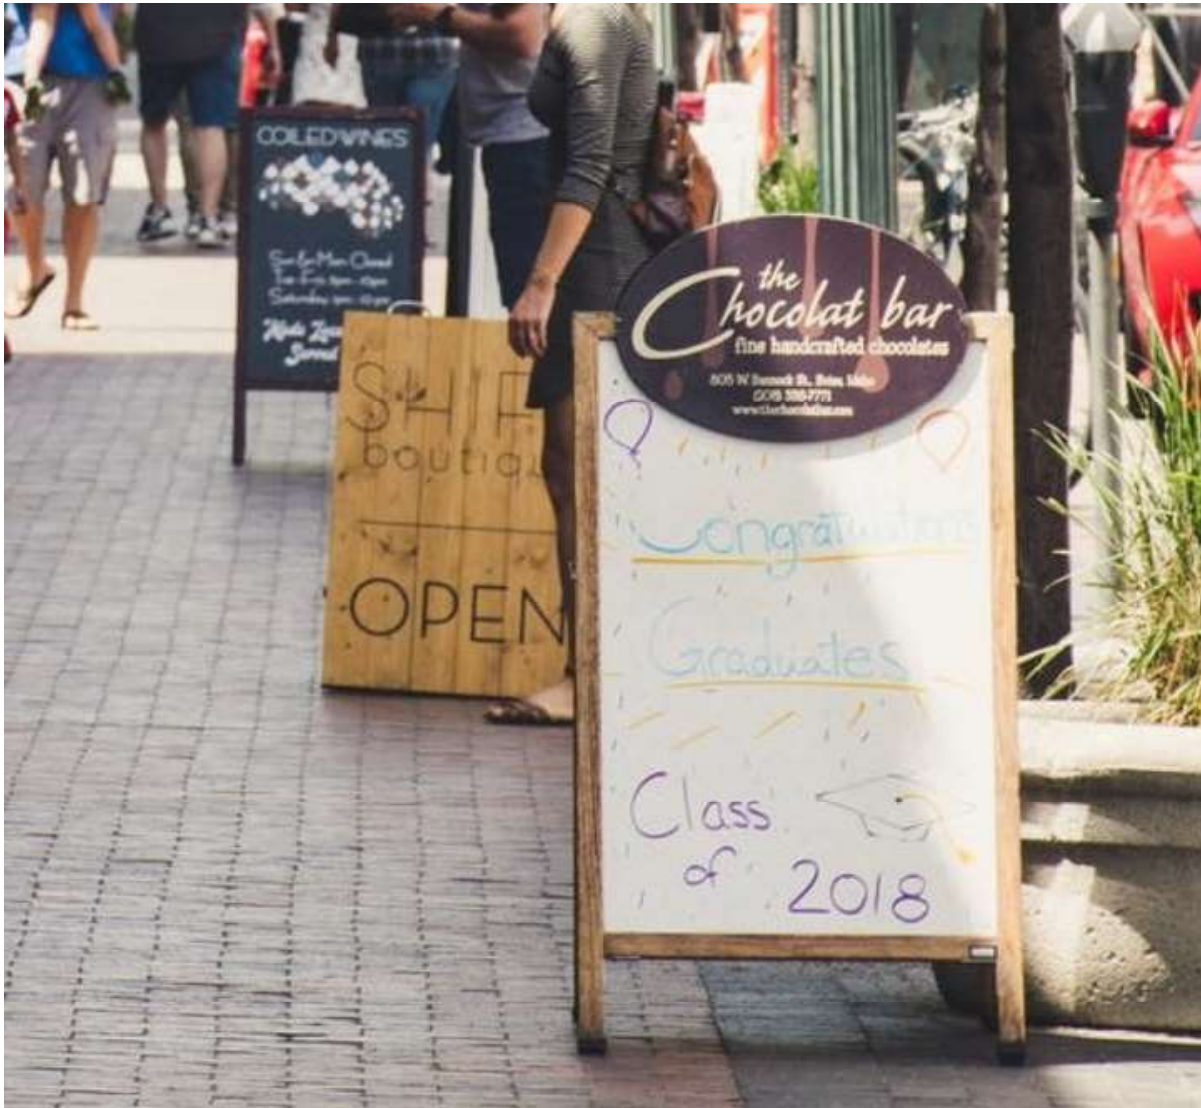 COILED WINES
Sun & Mon Closed
Tue-Fri
Saturday
Served
SHIF
boutiqu
OPEN
the
Chocolat bar
fine handcrafted chocolates
805 W Bannock St., Boise, Idaho
(208) 338-7771
www.thechocolatbar.com
Congratulations
Graduates
Class
of
2018